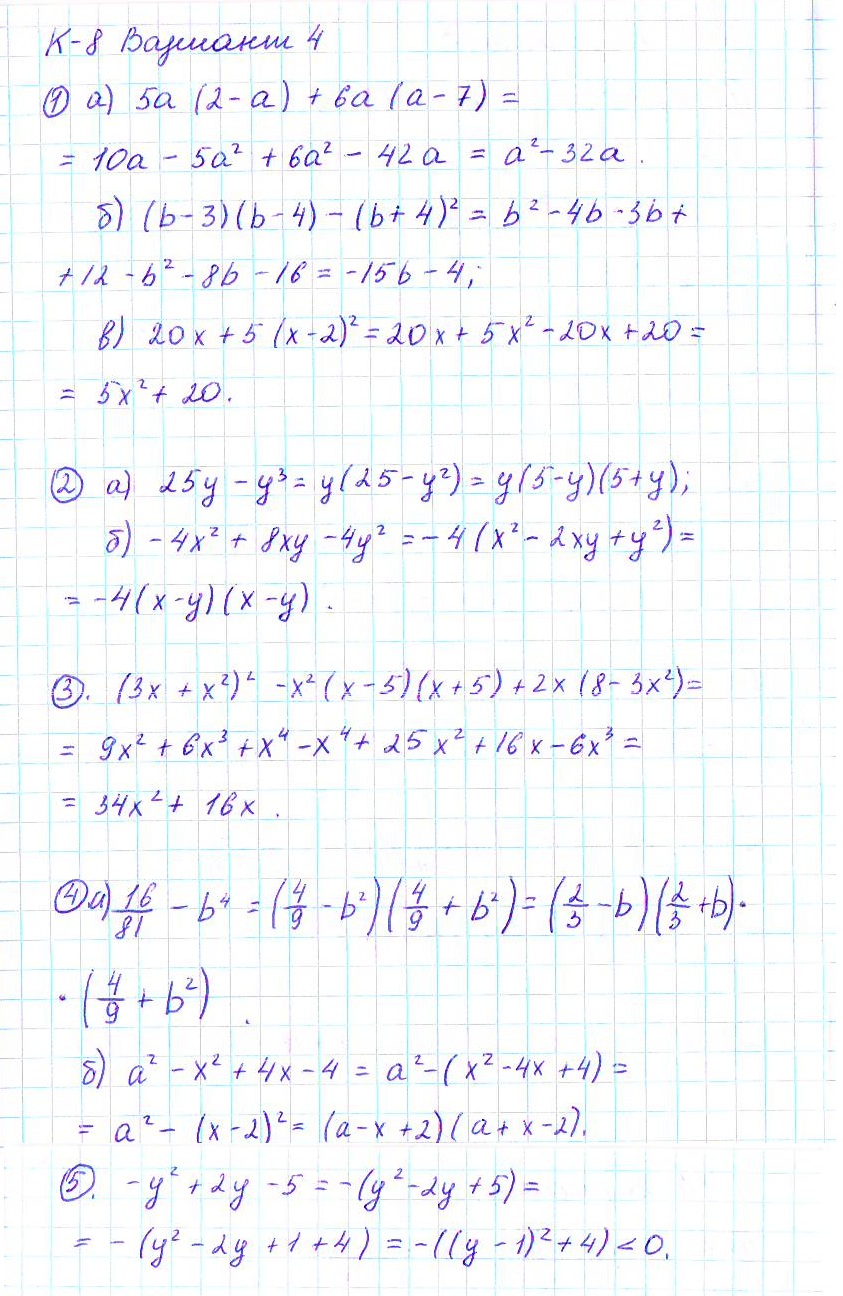 К-8 Вариант 4
① а) 5a (2 - a) + 6a (a - 7) =
= 10a - 5a² + 6a² - 42a = a² - 32a.
б) (b - 3)(b - 4) - (b + 4)² = b² - 4b - 3b +
+ 12 - b² - 8b - 16 = -15b - 4;
в) 20x + 5 (x - 2)² = 20x + 5x² - 20x + 20 =
= 5x² + 20.
② а) 25y - y³ = y(25 - y²) = y(5 - y)(5 + y);
б) -4x² + 8xy - 4y² = -4(x² - 2xy + y²) =
= -4(x - y)(x - y).
③. (3x + x²)² - x²(x - 5)(x + 5) + 2x (8 - 3x²) =
= 9x² + 6x³ + x⁴ - x⁴ + 25x² + 16x - 6x³ =
= 34x² + 16x.
④ а) 16/81 - b⁴ = (4/9 - b²)(4/9 + b²) = (2/3 - b)(2/3 + b)·
· (4/9 + b²).
б) a² - x² + 4x - 4 = a² - (x² - 4x + 4) =
= a² - (x - 2)² = (a - x + 2)(a + x - 2).
⑤. -y² + 2y - 5 = -(y² - 2y + 5) =
= - (y² - 2y + 1 + 4) = -((y - 1)² + 4) < 0.